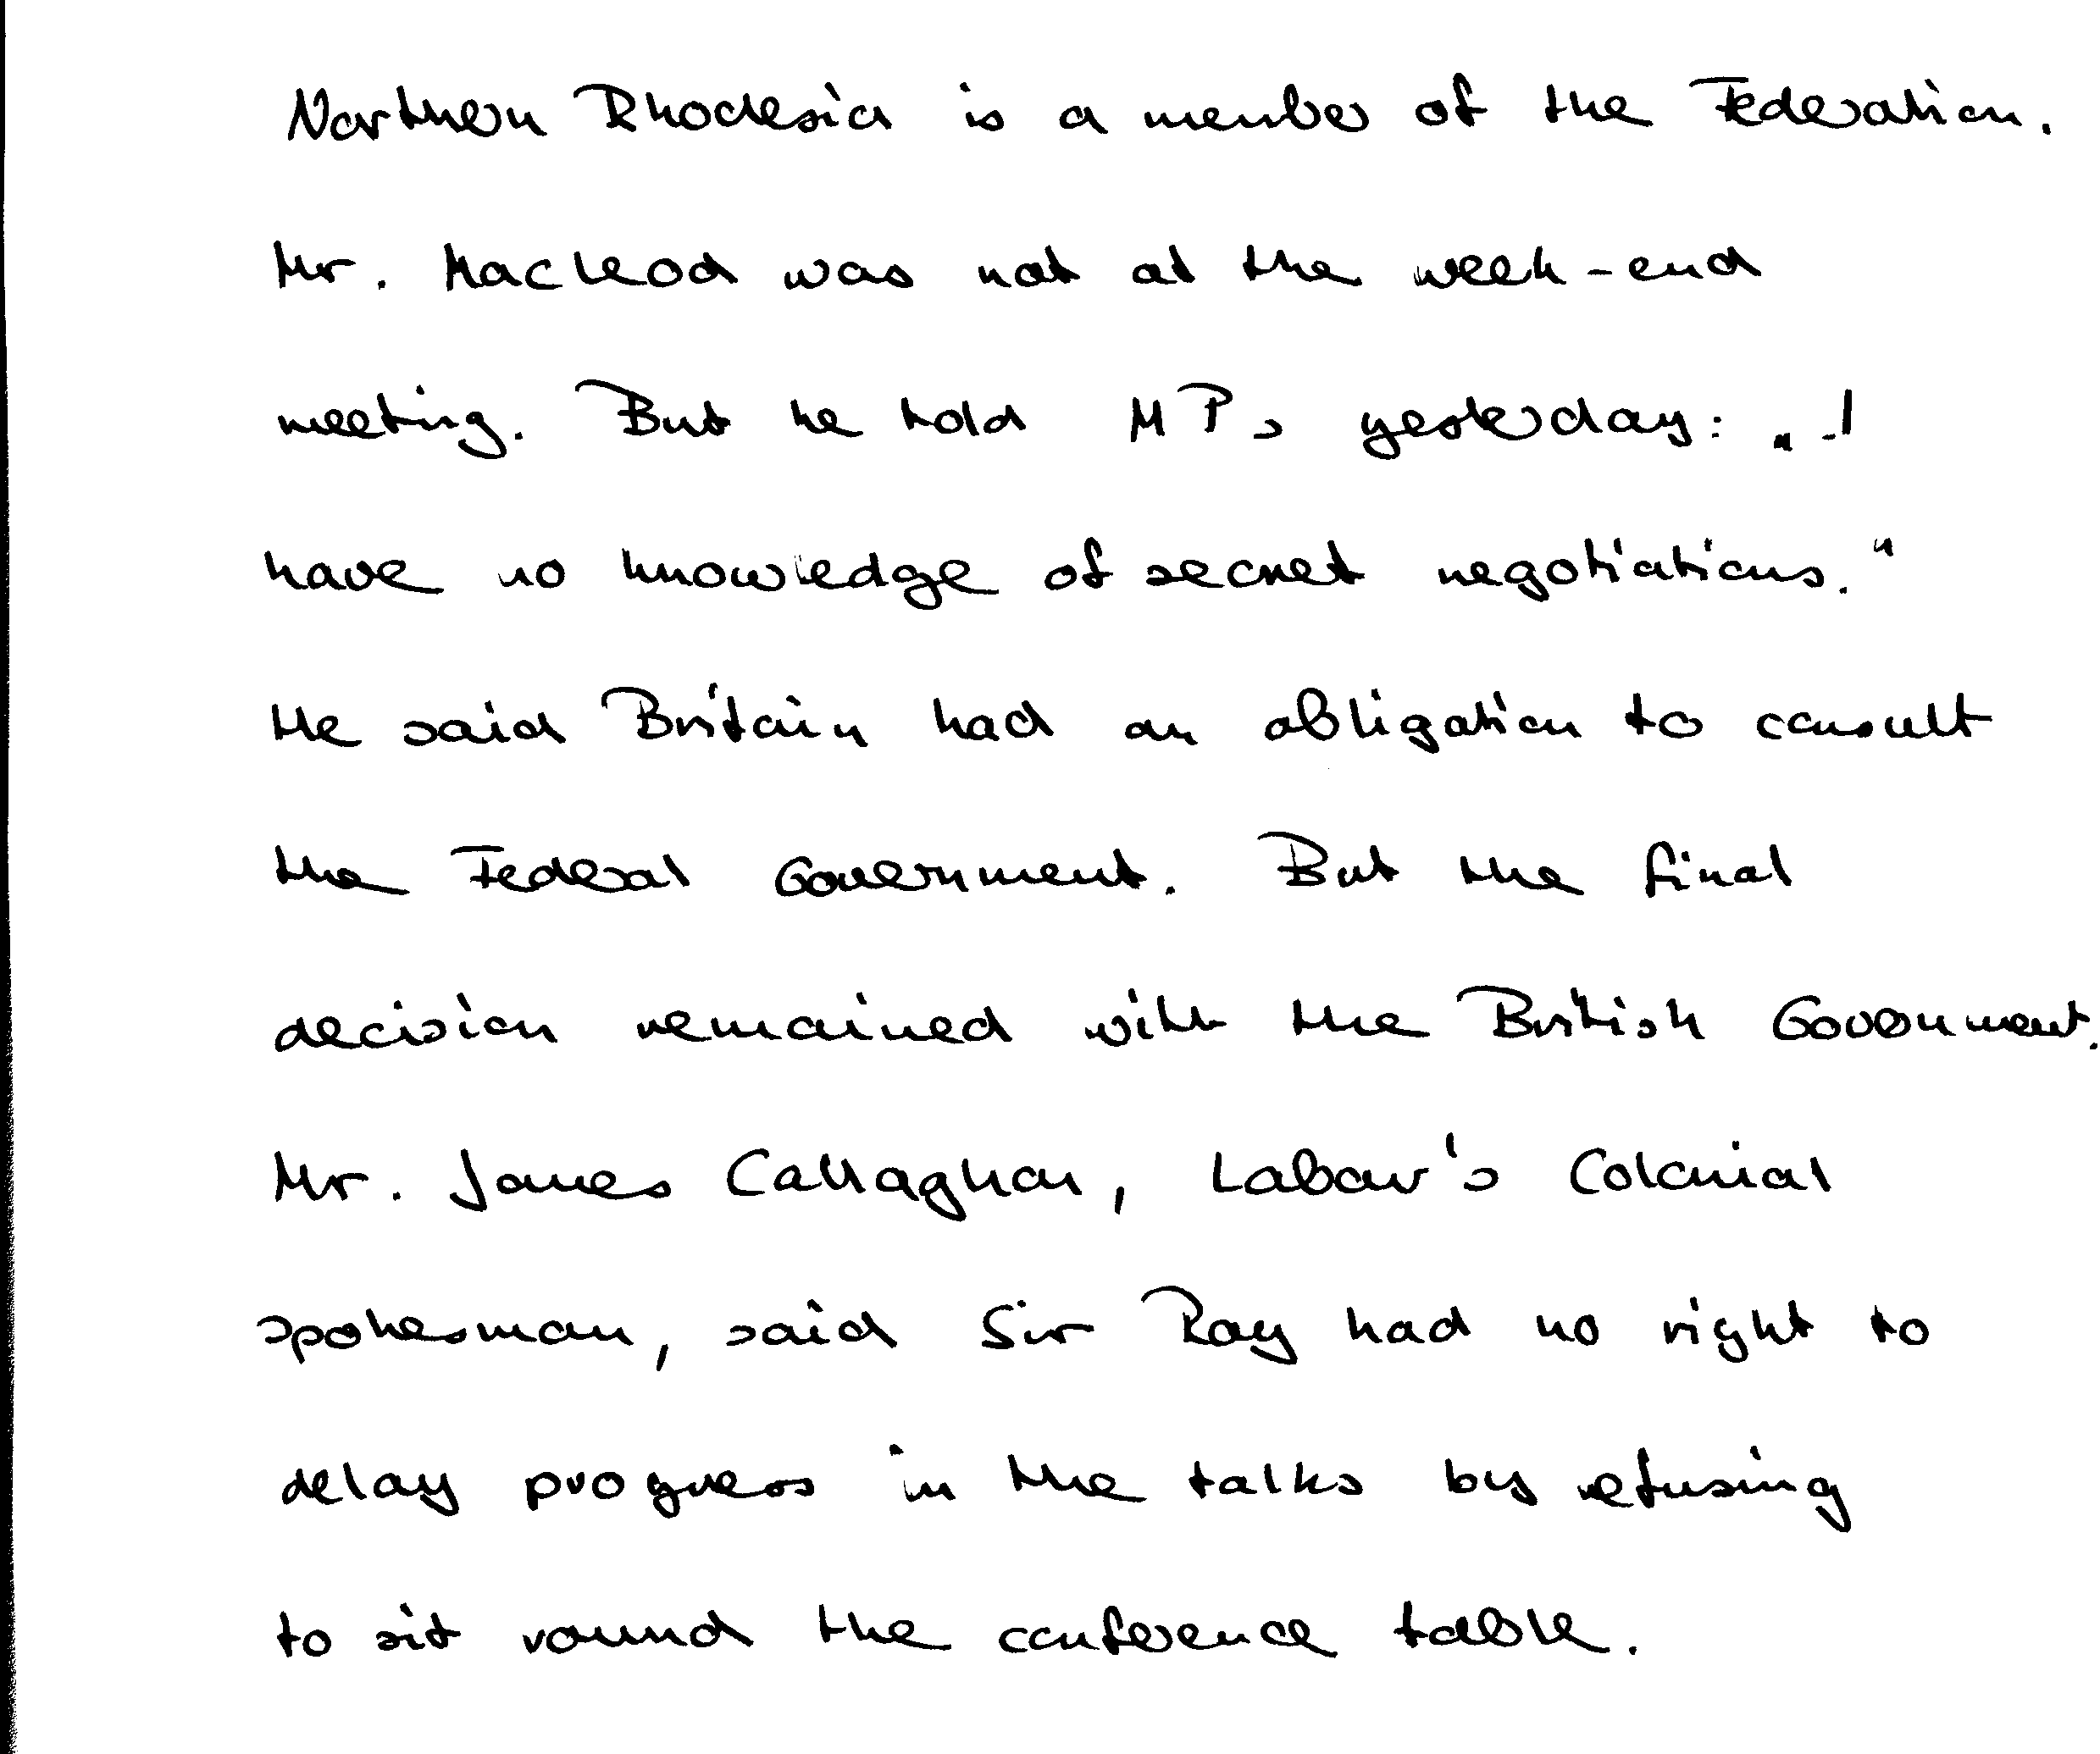 Northern Rhodesia is a member of the Federation.
Mr. Macleod was not at the week-end
meeting. But he told MPs yesterday: „I
have no knowledge of secret negotiations.“
He said Britain had an obligation to consult
the Federal Government. But the final
decision remained with the British Government.
Mr. James Callaghan, Labour's Colonial
spokesman, said Sir Roy had no right to
delay progress in the talks by refusing
to sit round the conference table.